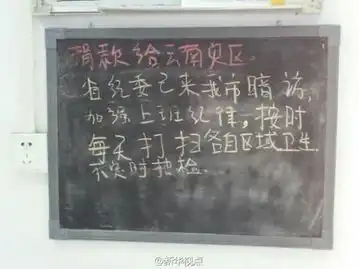 捐款给云南灾区。
省纪委已来我市暗访,
加强上班纪律,按时
每天打扫各自区域卫生.
不定时抽检.
@新华视点